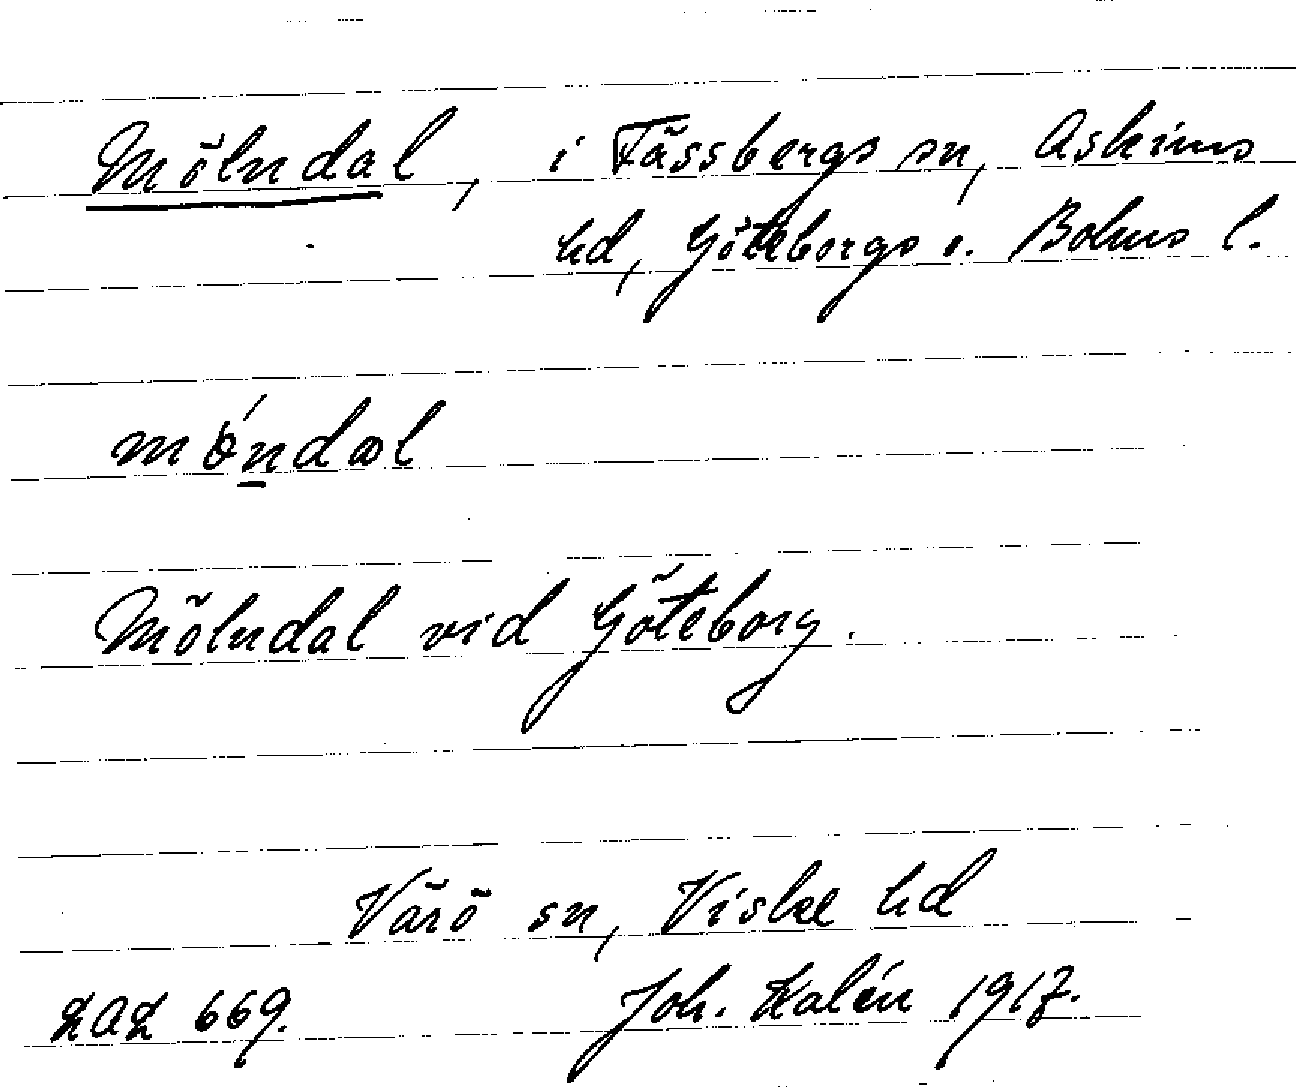 Mölndal, i Fässbergs sn, Askims
hd, Göteborgs o. Bohus l.
mǿndal
Mölndal vid Göteborg.
Värö sn, Viske hd
LAL 669. Joh. Kalén 1917.